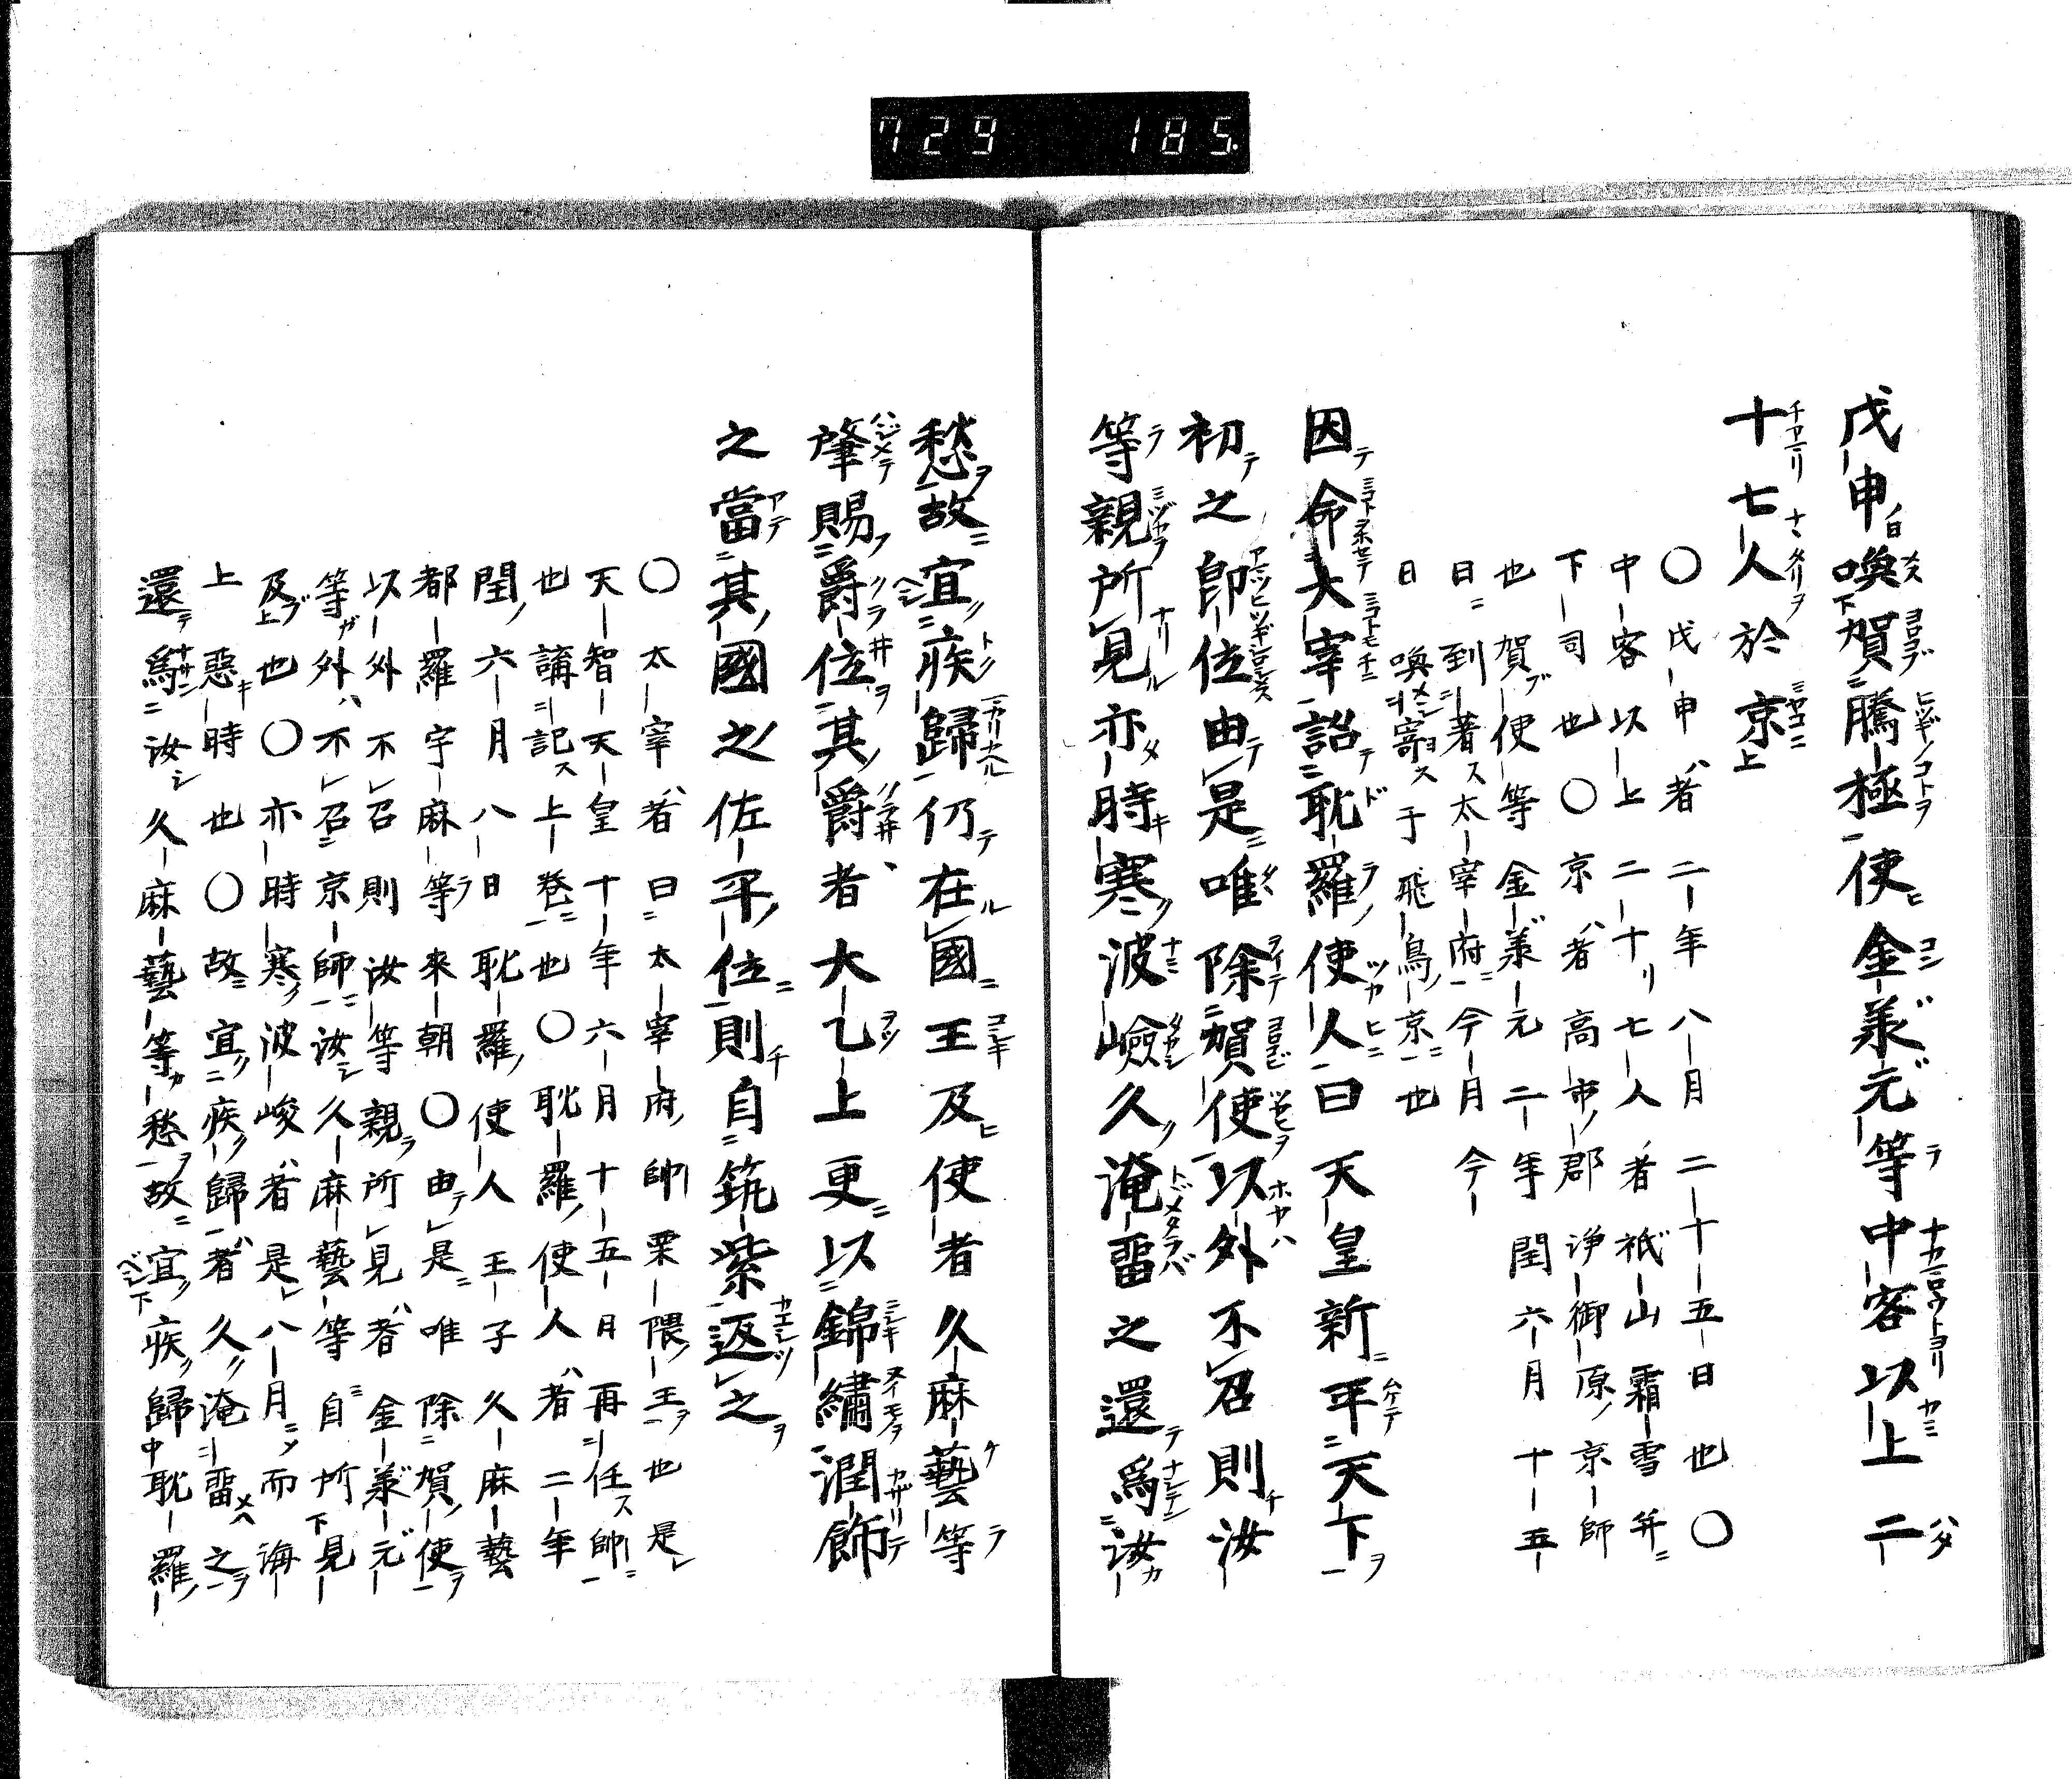 729 185.
戊申喚賀騰極使金承元等中客以上二
十七人於京
〇戊申者二年八月二十五日也〇
中客以上二十七人者祇山霜雪并
下司也〇京者高市郡浄御原京師
也賀使等金承元二年閏六月十五
日到著太宰府今月今
日喚寄于飛鳥京也
因命大宰詔耽羅使人曰天皇新平天下
初之即位由是唯除賀使以外不召則汝
等親所見亦時寒波嶮久淹留之還爲汝
愁故宜疾歸仍在國王及使者久麻藝等
肇賜爵位其爵者大乙上更以錦繡潤飾
之當其國之佐平位則自筑紫返之
〇太宰者曰太宰府帥栗隈王也是
天智天皇十年六月十五日再任帥
也講記上卷也〇耽羅使人者二年
閏六月八日耽羅使人王子久麻藝
都羅宇麻等來朝〇由是唯除賀使
以外不召則汝等親所見者金承元
等外不召京師汝久麻藝等自所見
及也〇亦時寒波峻者是八月而海
上惡時也〇故宜疾歸者久淹留之
還爲汝久麻藝等愁故宜疾歸耽羅